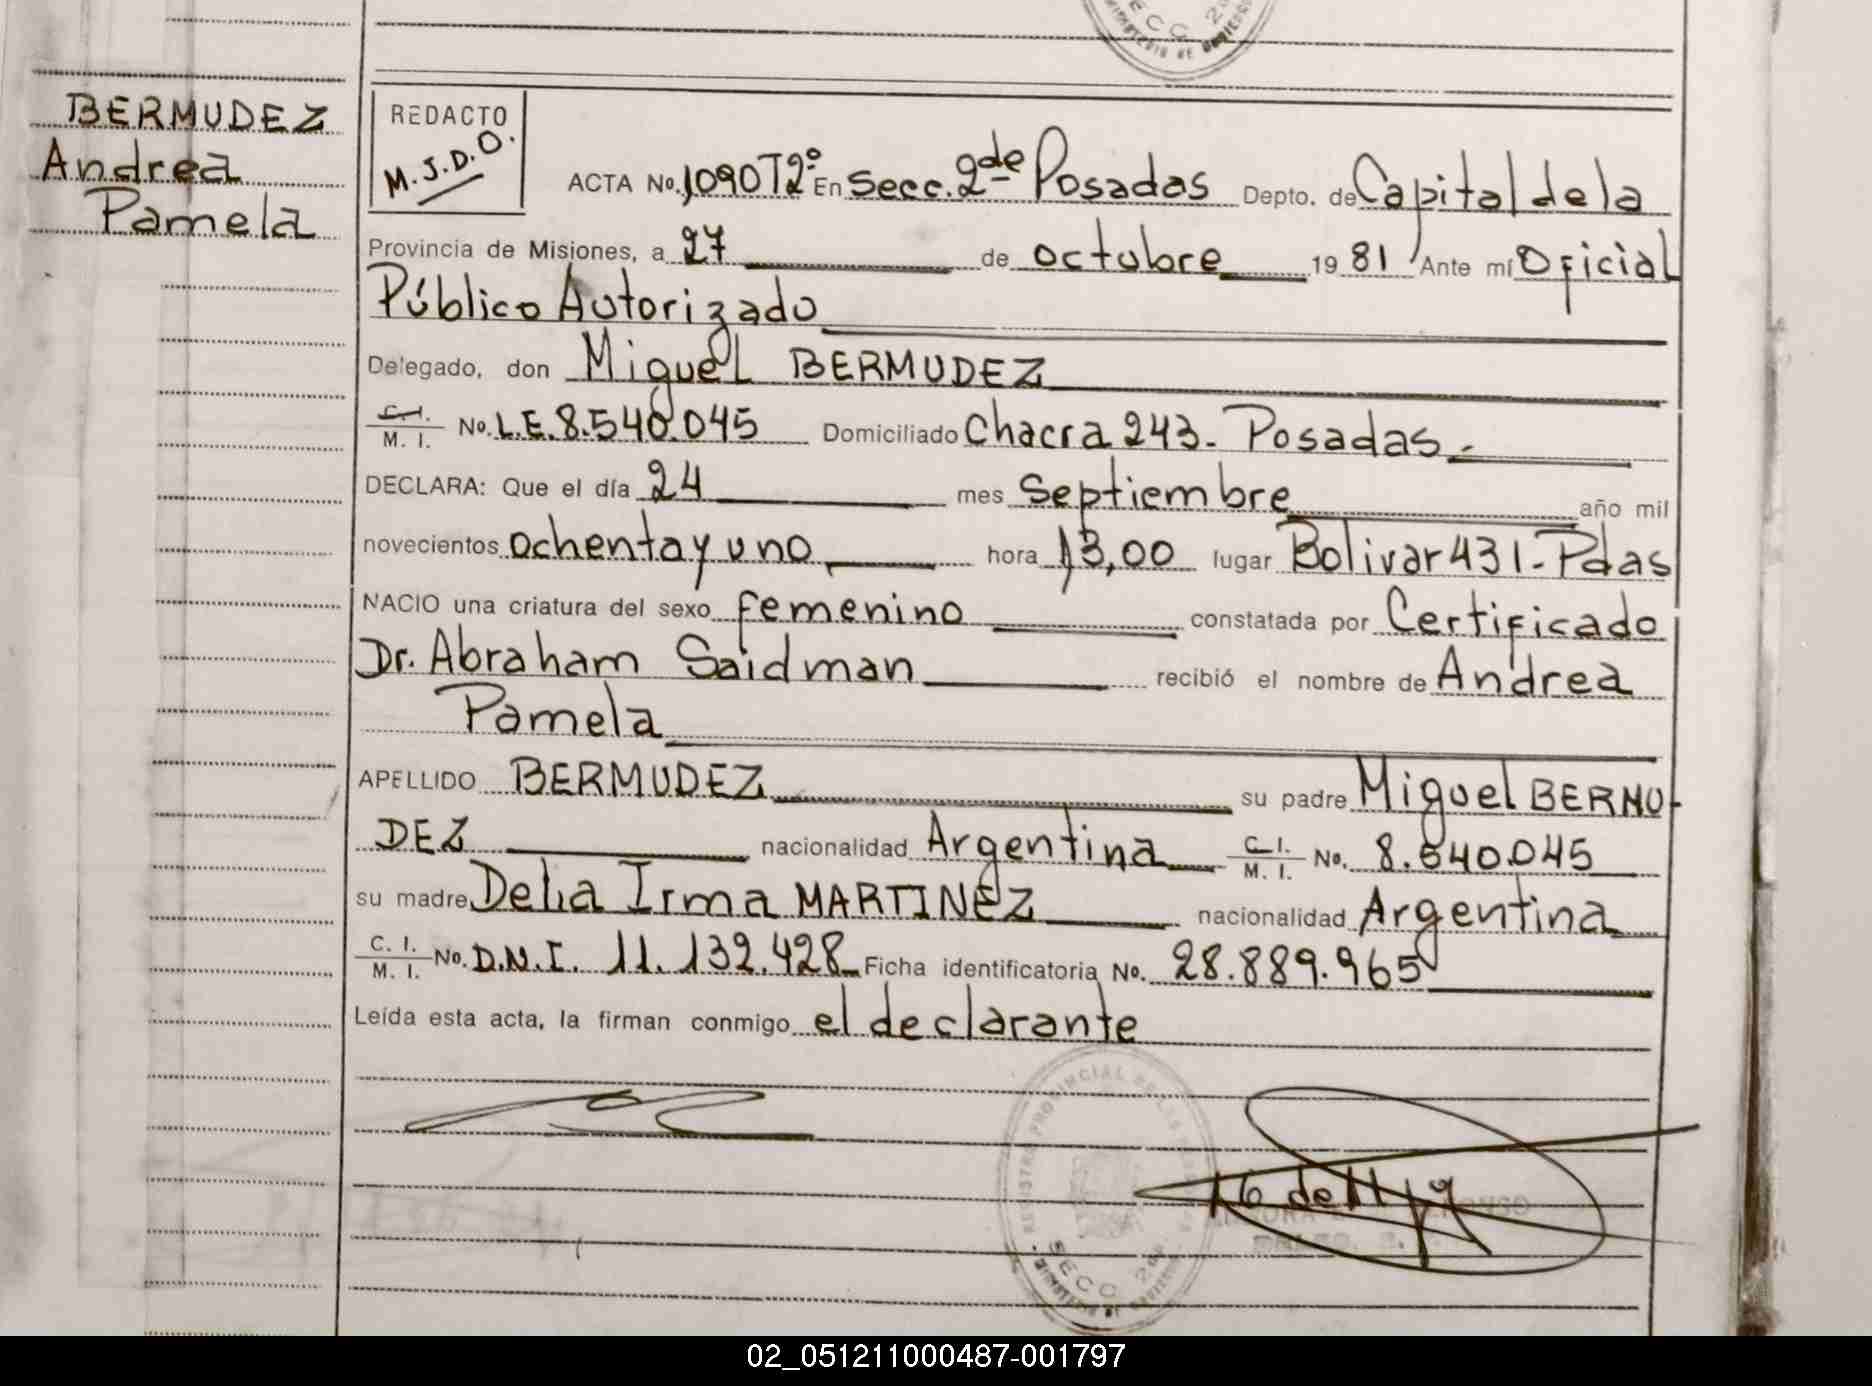 SECC. 2
MINISTERIO DE GOBIERNO
BERMUDEZ
Andrea
Pamela
REDACTO
M.J.D.O.
ACTA No. 1090T2º En Secc. 2de Posadas Depto. de Capital de la
Provincia de Misiones, a 27 de octubre 19 81 Ante mí Oficial
Público Autorizado
Delegado, don Miguel BERMUDEZ
C.I. M. I. No. L.E. 8.540.045 Domiciliado Chacra 243 - Posadas.-
DECLARA: Que el día 24 mes Septiembre año mil
novecientos ochenta y uno hora 13,00 lugar Bolivar 431 - Pdas
NACIO una criatura del sexo femenino constatada por Certificado
Dr. Abraham Saidman recibió el nombre de Andrea
Pamela
APELLIDO BERMUDEZ su padre Miguel BERMU-
DEZ nacionalidad Argentina C. I. M. I. No. 8.540.045
su madre Delia Irma MARTINEZ nacionalidad Argentina
C. I. M. I. No. D.N.I. 11.132.428 Ficha identificatoria No. 28.889.965
Leída esta acta, la firman conmigo el declarante
REGISTRO PROVINCIAL DE LAS
SECC. 2
MINISTERIO DE GOBIERNO
02_051211000487-001797